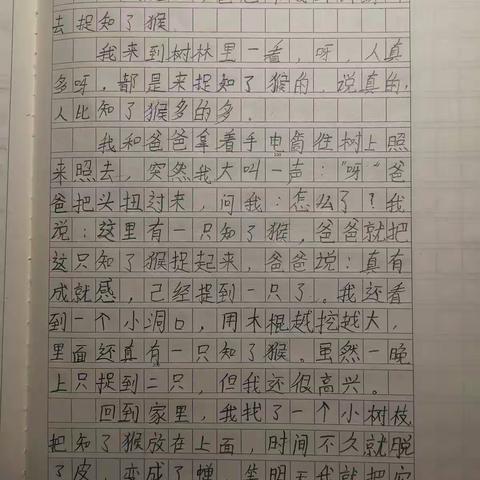 去捉知了猴
我来到树林里一看，呀，人真
多呀，都是来捉知了猴的，说真的，
人比知了猴多的多。
我和爸爸拿着手电筒往树上照
来照去，突然我大叫一声："呀"爸
爸把头扭过来，问我：怎么了？我
说：这里有一只知了猴，爸爸就把
这只知了猴捉起来，爸爸说：真有
成就感，己经捉到一只了。我还看
到一个小洞口，用木棍越挖越大，
里面还真有一只知了猴。虽然一晚
上只捉到二只，但我还很高兴。
回到家里，我找了一个小树枝
把知了猴放在上面，时间不久就脱
了皮，变成了蝉，等明天我就把它